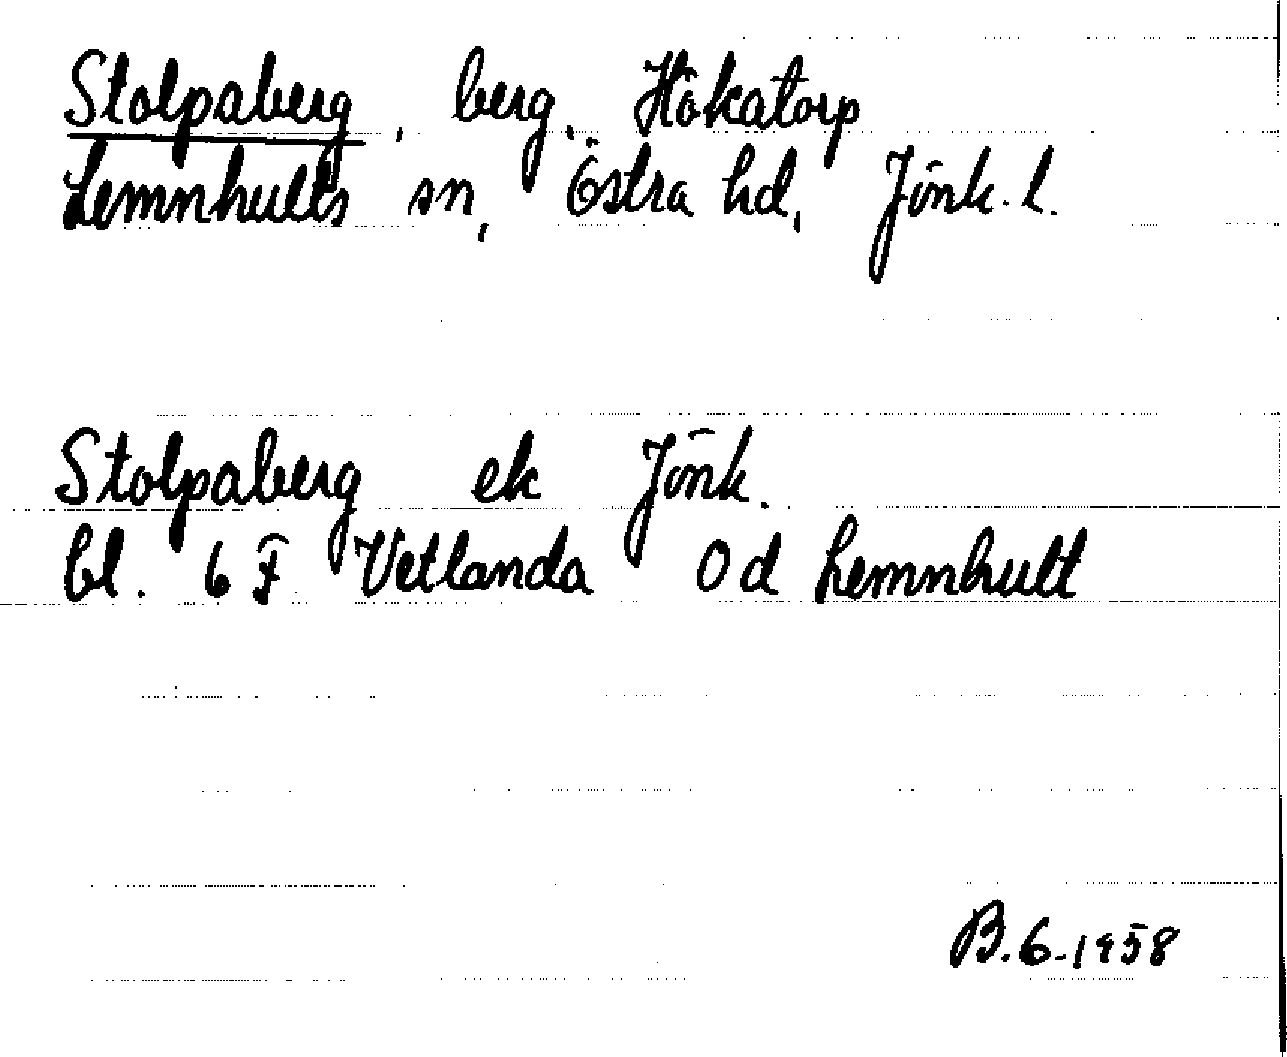 Stolpaberg, berg, Hökatorp
Lemnhults sn, Östra hd, Jönk. l.
Stolpaberg ek Jönk.
bl. 6 F Vetlanda 0 d Lemnhult
B.6.1958